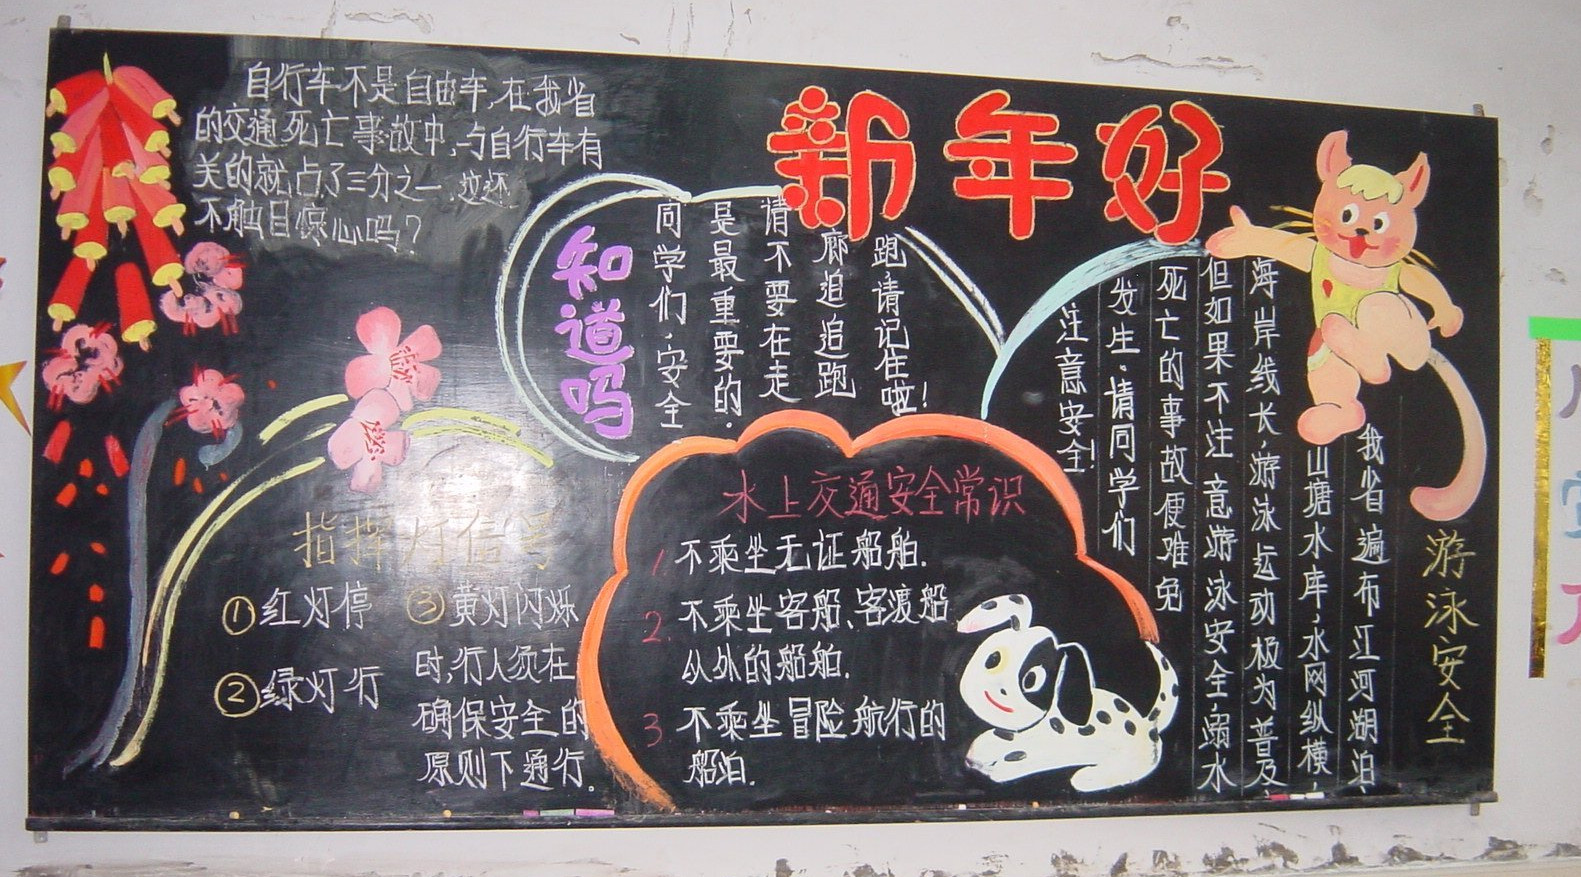 自行车不是自由车,在我省
的交通死亡事故中,与自行车有
关的就占了三分之一.这还
不触目惊心吗?
新年好
知道吗
同学们,安全
是最重要的.
请不要在走
廊追追跑
跑,请记住啦!
指挥灯信号
①红灯停
②绿灯行
③黄灯闪烁
时,行人须在
确保安全的
原则下通行.
水上交通安全常识
1.不乘坐无证船舶.
2.不乘坐客船、客渡船
以外的船舶.
3.不乘坐冒险航行的
船泊.
游泳安全
我省遍布江河湖泊、
山塘水库,水网纵横,
海岸线长,游泳运动极为普及,
但如果不注意游泳安全,溺水
死亡的事故便难免
发生.请同学们
注意安全!